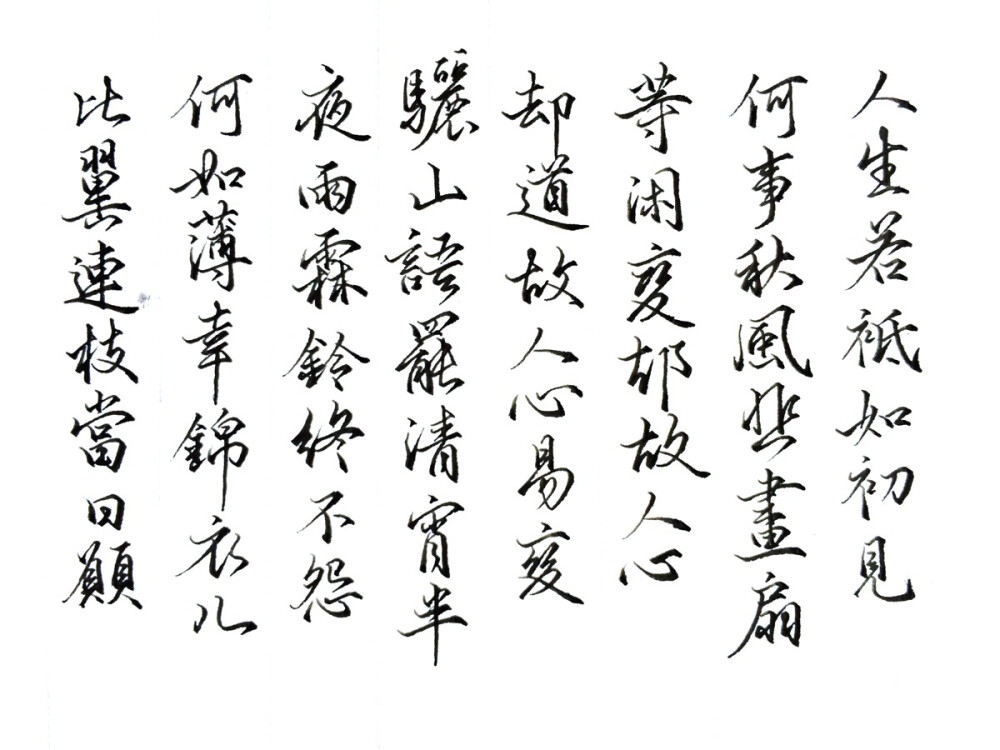 人生若祗如初見
何事秋風悲畫扇
等閑變却故人心
却道故人心易變
驪山語罷清宵半
夜雨霖鈴終不怨
何如薄幸錦衣儿
比翼連枝當日願